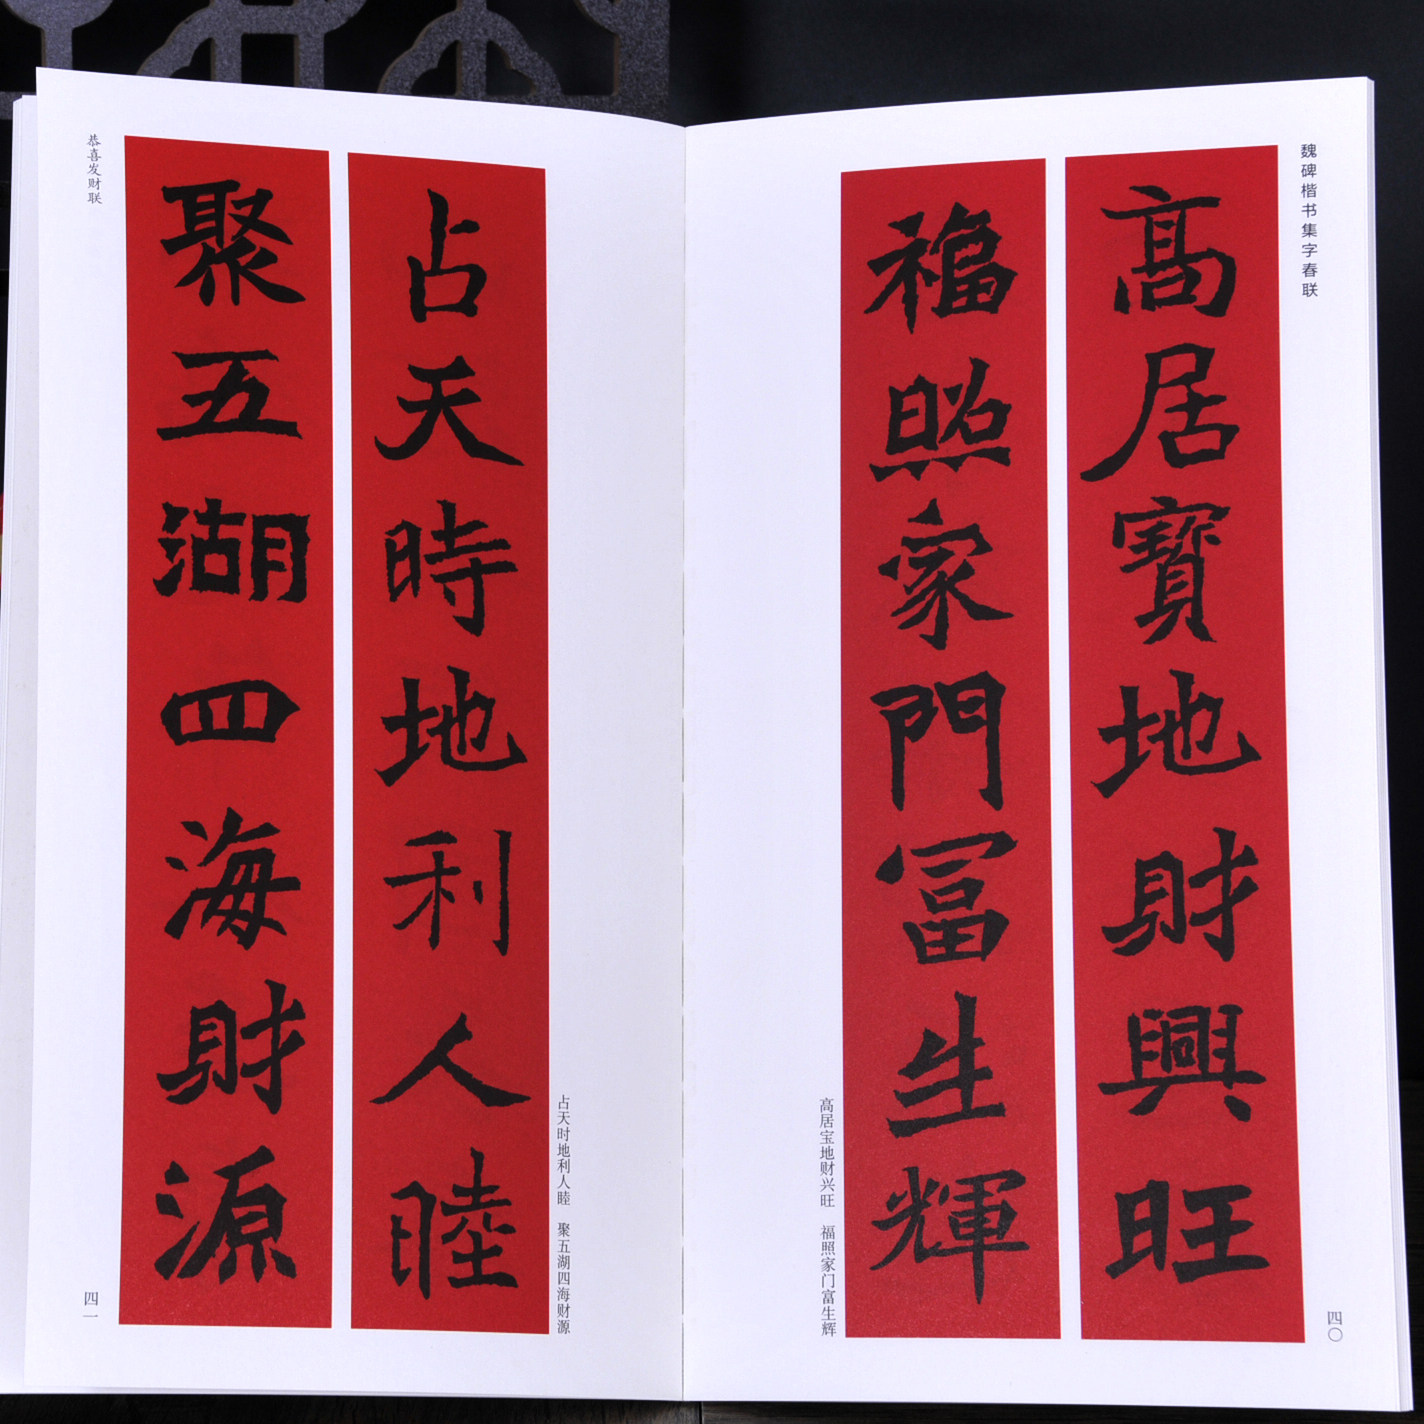 魏碑楷书集字春联
高居寶地財興旺
福照家門冨生輝
高居宝地财兴旺 福照家门富生辉
四〇
占天時地利人睦
聚五湖四海財源
占天时地利人睦 聚五湖四海财源
恭喜发财联
四一